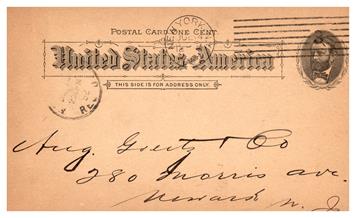 POSTAL CARD ONE CENT.
NEW YORK
United States of America
THIS SIDE IS FOR ADDRESS ONLY.
REC'D
Aug. Goertz & Co
280 Morris ave.
Newark N. J